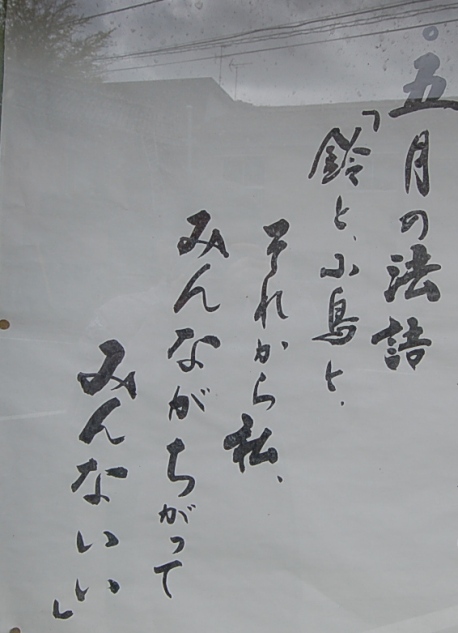 五月の法語
「鈴と、小鳥と、
それから私、
みんなちがって
みんないい」